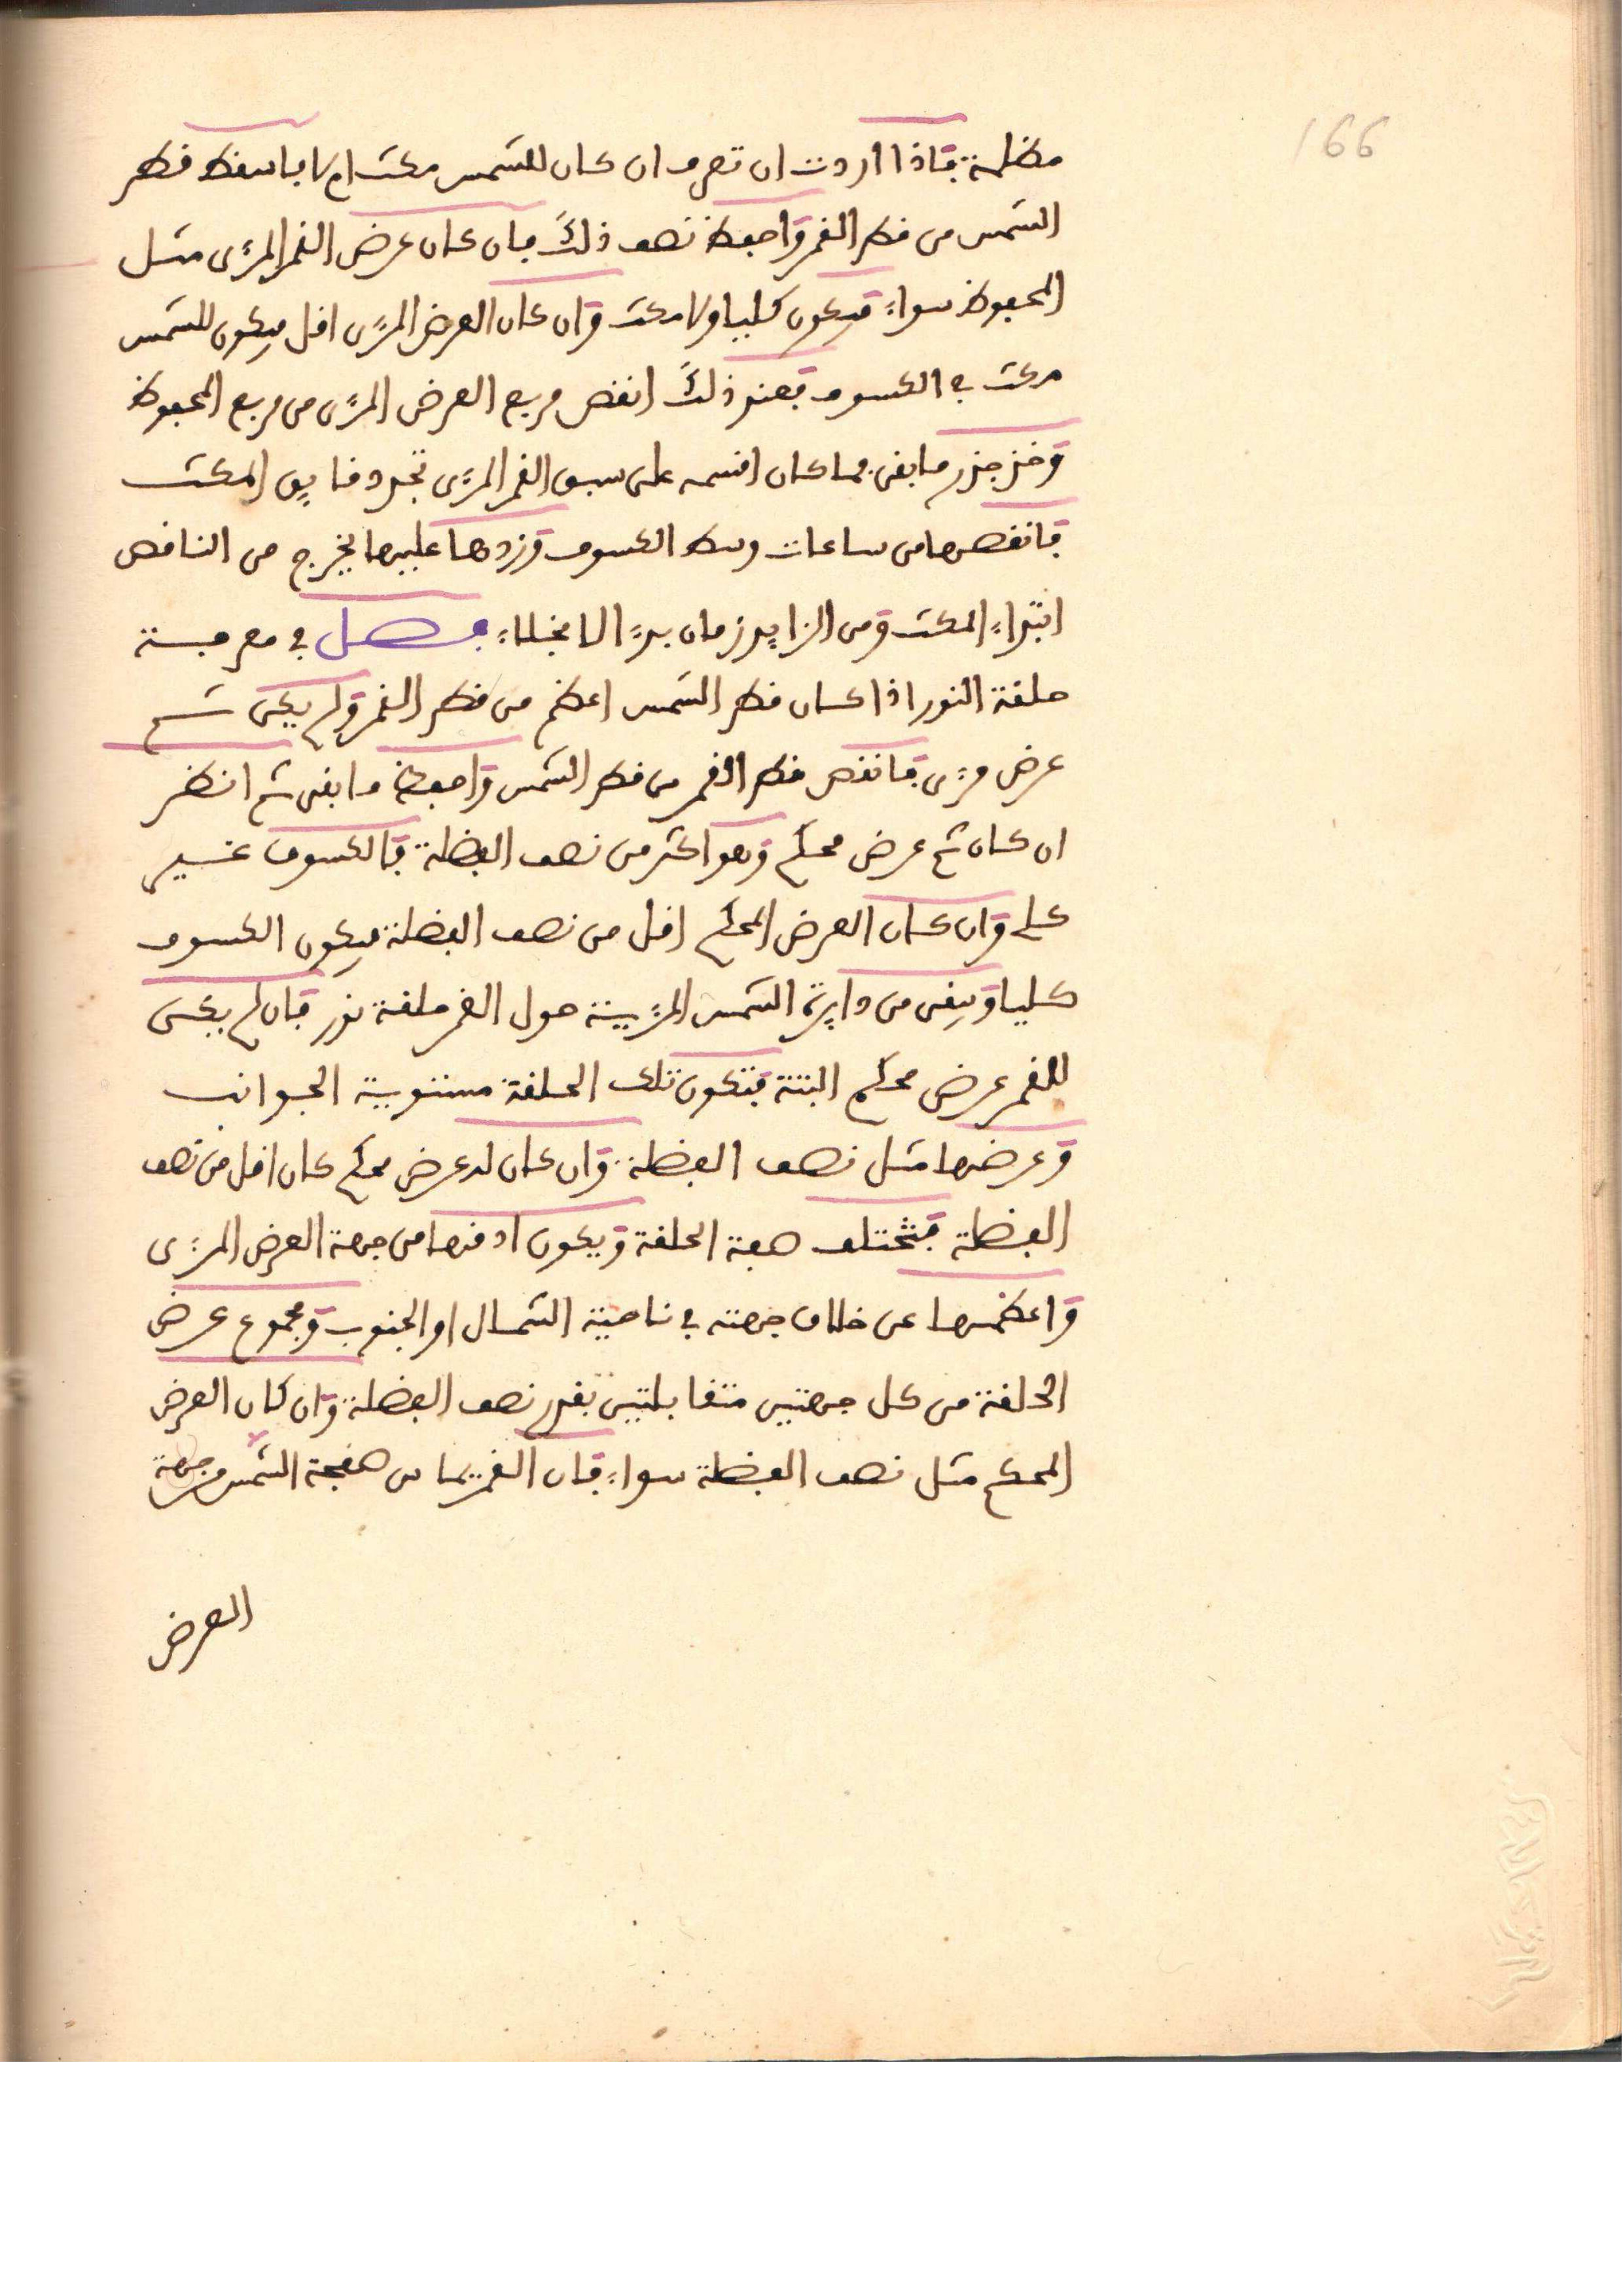 166
مظلمة فاذا اردت ان تعرف ان كان للشمس مكث ام لا فاسقط قطر
الشمس من قطر القمر واحفظ نصف ذلك فان كان عرض القمر المرءى مثل
المحفوظ سواء فيكون كليا ولا مكث وان كان العرض المرءى اقل فيكون للشمس
مكث في الكسوف فعند ذلك انقص مربع العرض المرءى من مربع المحفوظ
وخذ جذر ما بقى فما كان اقسمه على سبق القمر المرءى تجد دقايق المكث
فانقصها من ساعات وسط الكسوف وزدها عليها يخرج من الناقص
ابتداء المكث ومن الزايد زمان بدء الانجلاء فصل في معرفة
حلقة النور اذا كان قطر الشمس اعظم من قطر القمر ولم يكن ثم
عرض مرءى فانقص قطر القمر من قطر الشمس واحفظ ما بقى ثم انظر
ان كان ثم عرض محكم وهو اكثر من نصف الفضلة فالكسوف غير
كلي وان كان العرض المحكم اقل من نصف الفضلة فيكون الكسوف
كليا ويبقى من دايرة الشمس المرءية حول القمر حلقة نور فان لم يكن
للقمر عرض محكم البتة فتكون تلك الحلقة مستوية الجوانب
وعرضها مثل نصف الفضلة وان كان له عرض محكم كان اقل من نصف
الفضلة فتختلف هيئة الحلقة ويكون ادقها من جهة العرض المرءى
واعظمها عن خلاف جهته في ناحية الشمال او الجنوب ومجموع عرض
الحلقة من كل جهتين متقابلتين بقدر نصف الفضلة وان كان العرض
المحكم مثل نصف الفضلة سواء فان القمر يماس صفحة الشمس من جهة
العرض